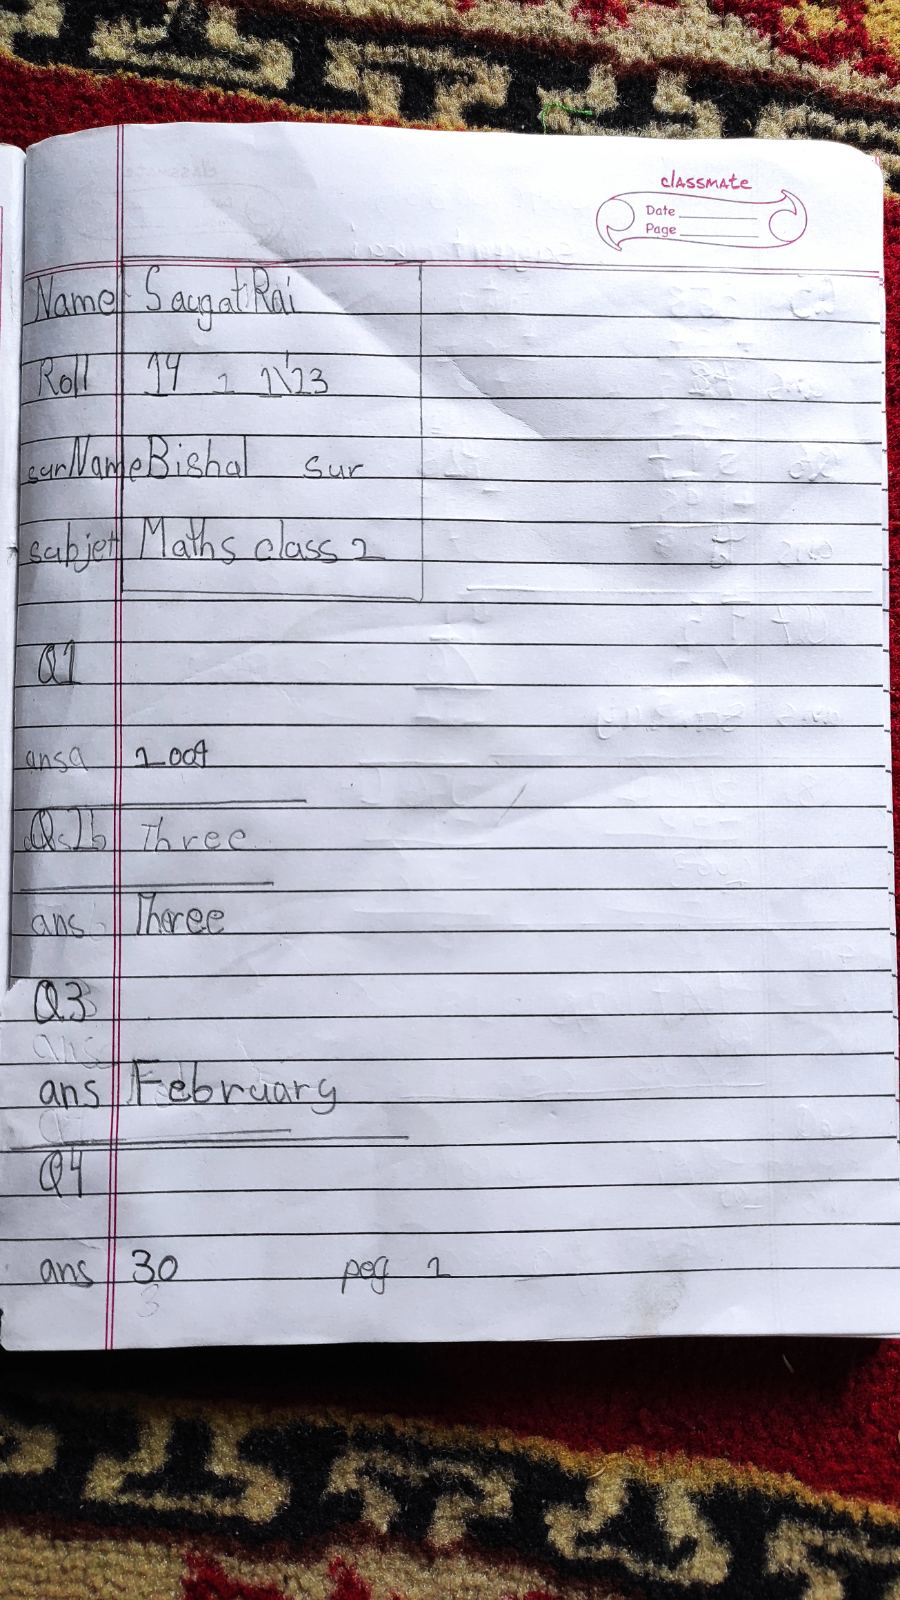 classmate
Date
Page
Name Saugat Rai
Roll 14 2 1\23
surName Bishal sur
subjet Maths class 2
Q1
ansa
Three
ans Three
Q3
ans
ans February
Q4
ans 30 peg 1